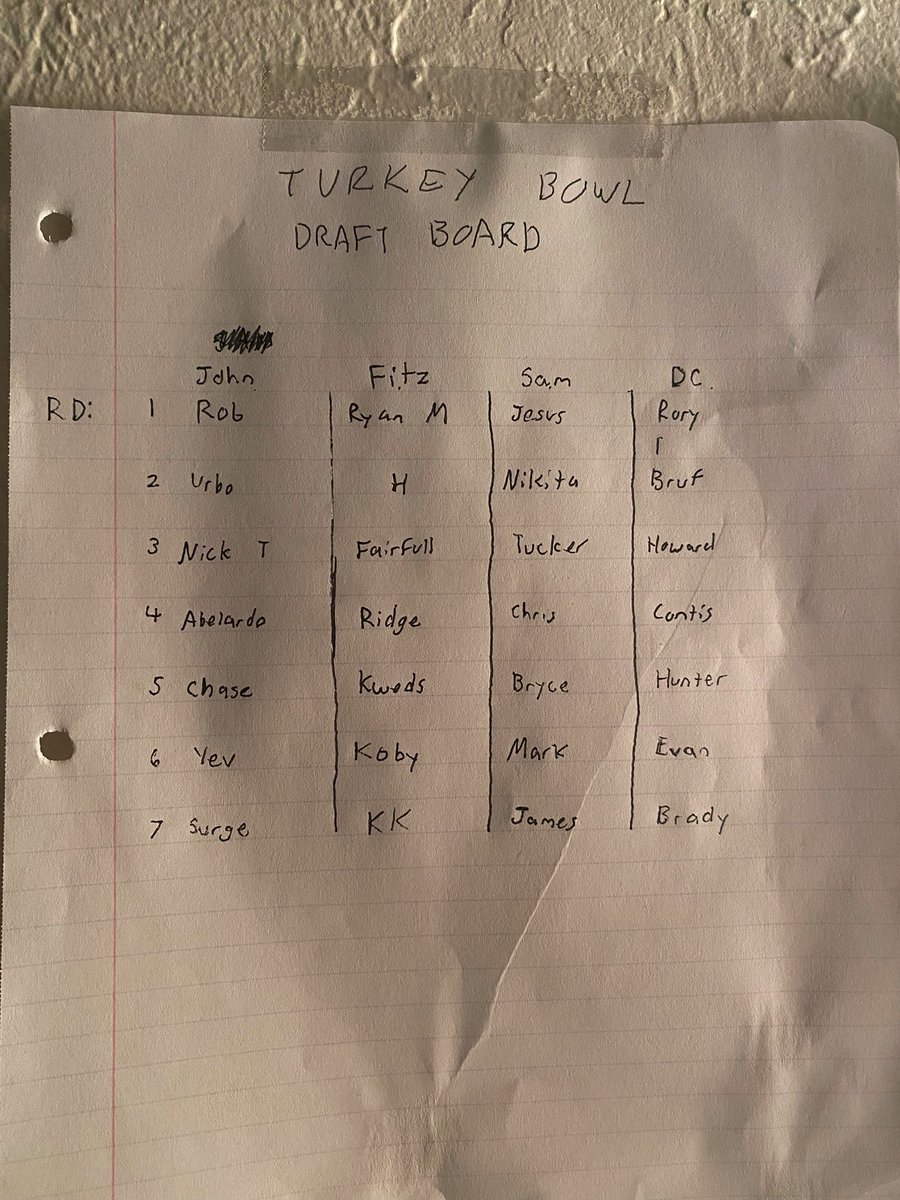 TURKEY BOWL
DRAFT BOARD
John Fitz Sam DC.
RD: 1 Rob Ryan M Jesus Rory
2 Urbo H Nikita Bruf
3 Nick T Fairfull Tucker Howard
4 Abelardo Ridge Chris Contis
5 Chase Kwods Bryce Hunter
6 Yev Koby Mark Evan
7 Surge KK James Brady